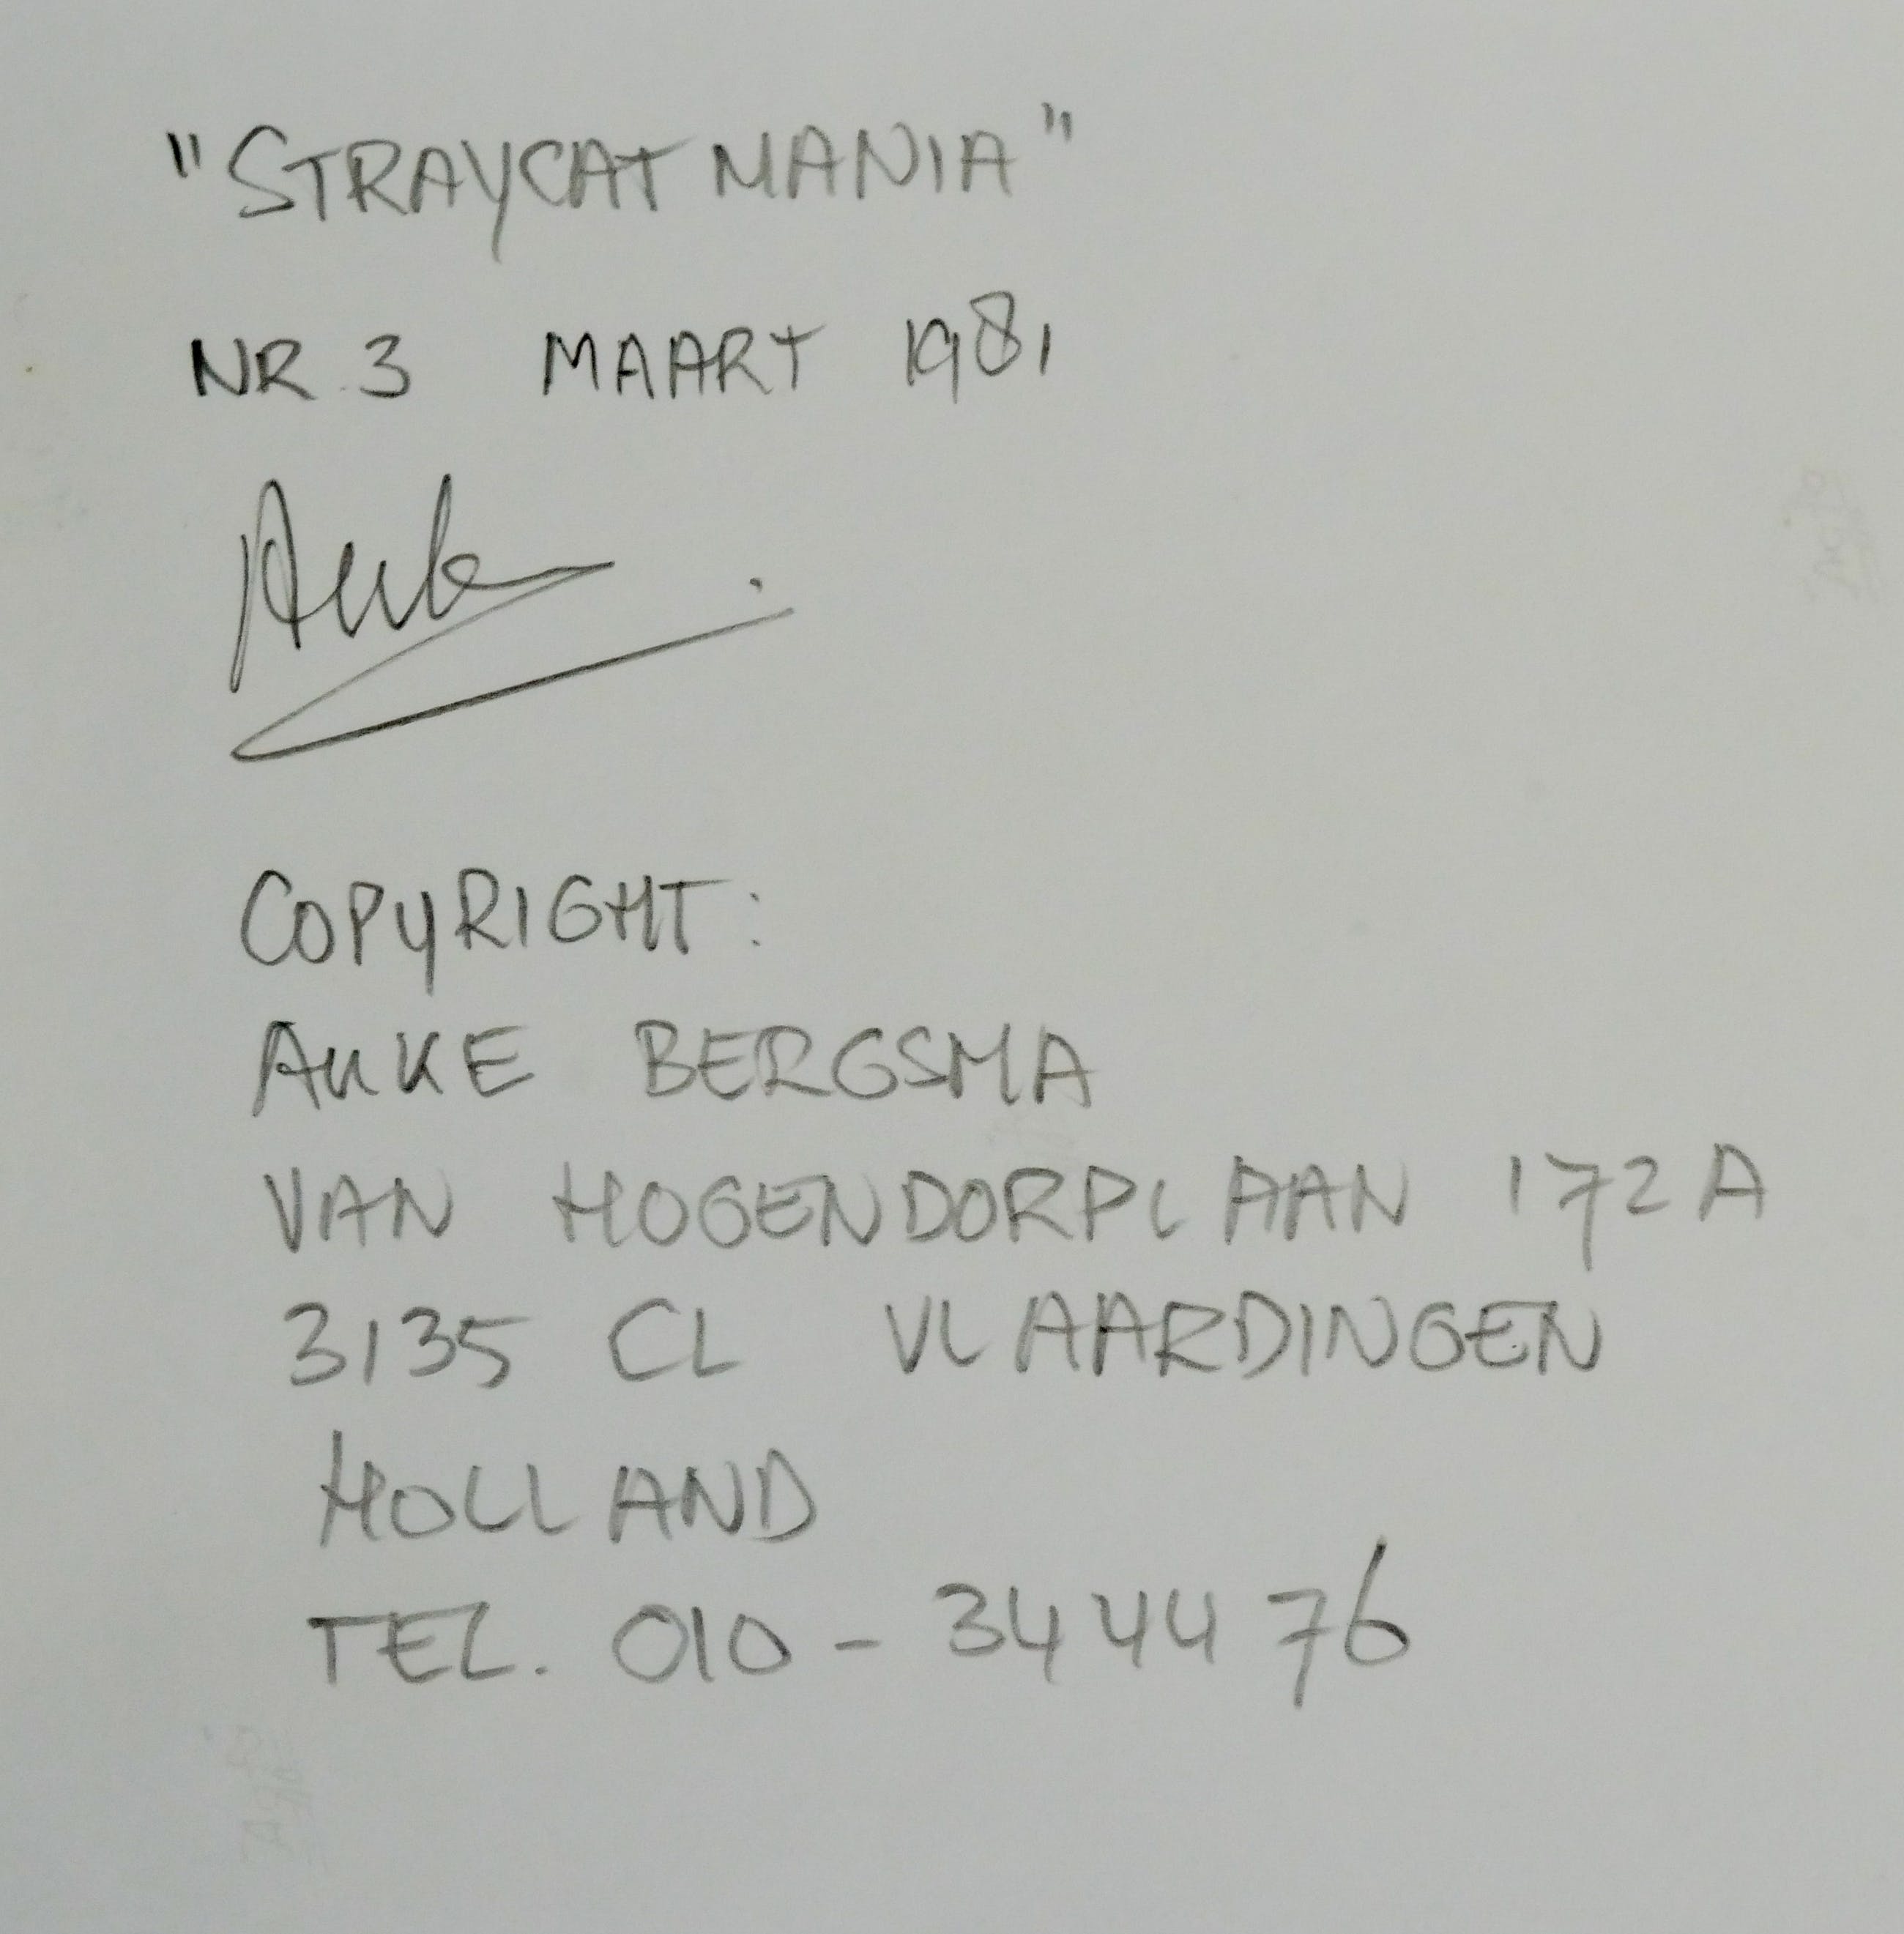 "STRAYCAT MANIA"
NR. 3 MAART 1981
Auke
COPYRIGHT:
AUKE BERGSMA
VAN HOGENDORPLAAN 172A
3135 CL VLAARDINGEN
HOLLAND
TEL. 010 - 344476